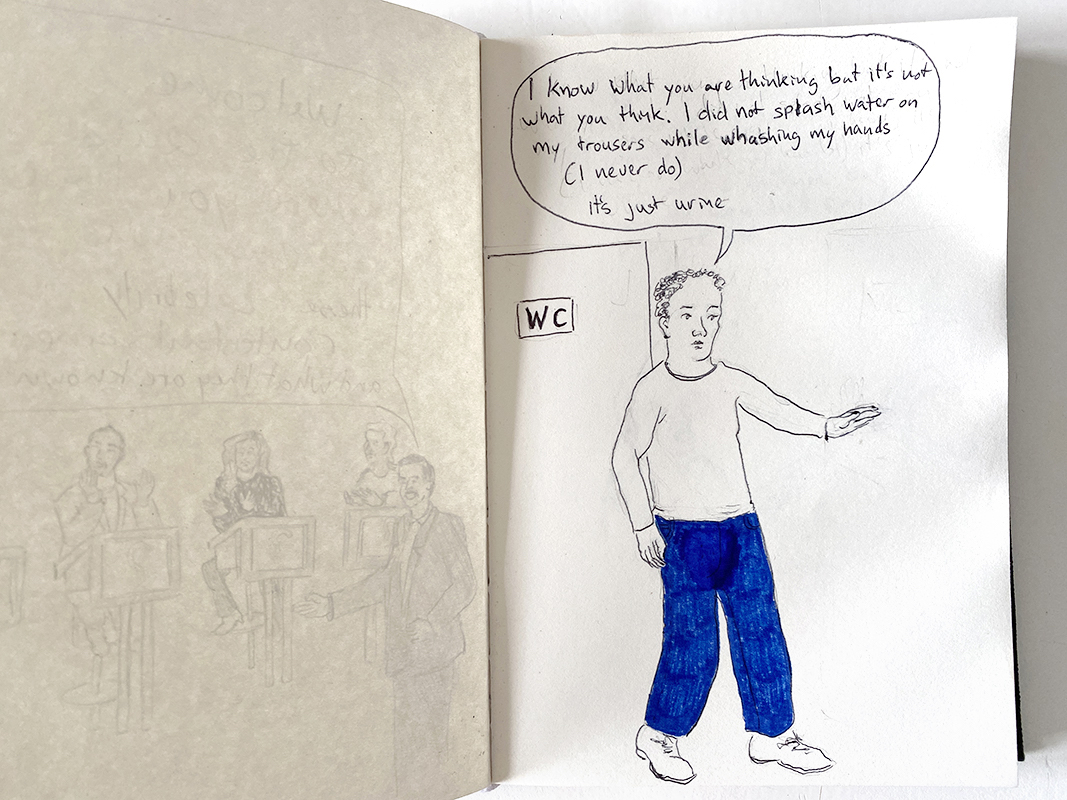 I know what you are thinking but it's not
what you think. I did not splash water on
my trousers while whashing my hands
(I never do)
it's just urine
WC
welcome
these
and what they are known